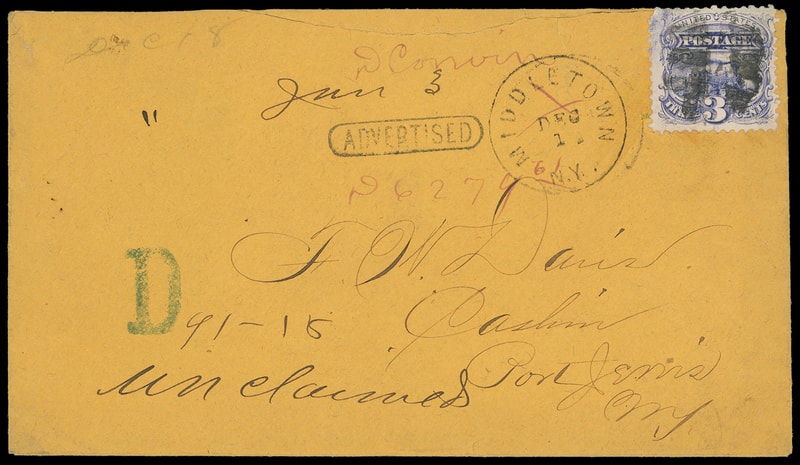 Dec 18
D Corwin
Jan 3
"
ADVERTISED
MIDDLETOWN
DEC
N.Y.
UNITED STATES
POSTAGE
THREE 3 CENTS
D 6279
61
F. W. Davis
D
91-18
Cashin
Port Jervis
NY
unclaimed